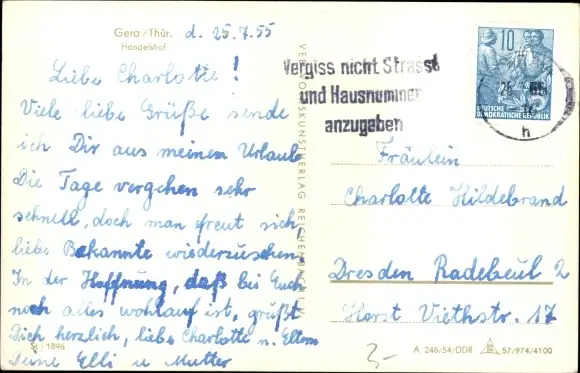 Gera/Thür. d. 25.7.55
Handelshof
Liebe Charlotte!
Viele liebe Grüße sende
ich Dir aus meinem Urlaub.
Die Tage vergehen sehr
schnell, doch man freut sich
liebe Bekannte wiederzusehen.
In der Hoffnung, daß bei Euch
noch alles wohlauf ist, grüßt
Dich herzlich, liebe Charlotte u. Eltern
Deine Elli u Mutter
S 1/1896
VERLAG REICHENBACH
Vergiss nicht Strasse
und Hausnummer
anzugeben
10
DEUTSCHE
DEMOKRATISCHE REPUBLIK
25
55
h
Fräulein
Charlotte Hildebrand
Dresden Radebeul 2
Horst Viethstr. 17
2,-
A 246/54/DDR 57/974/4100